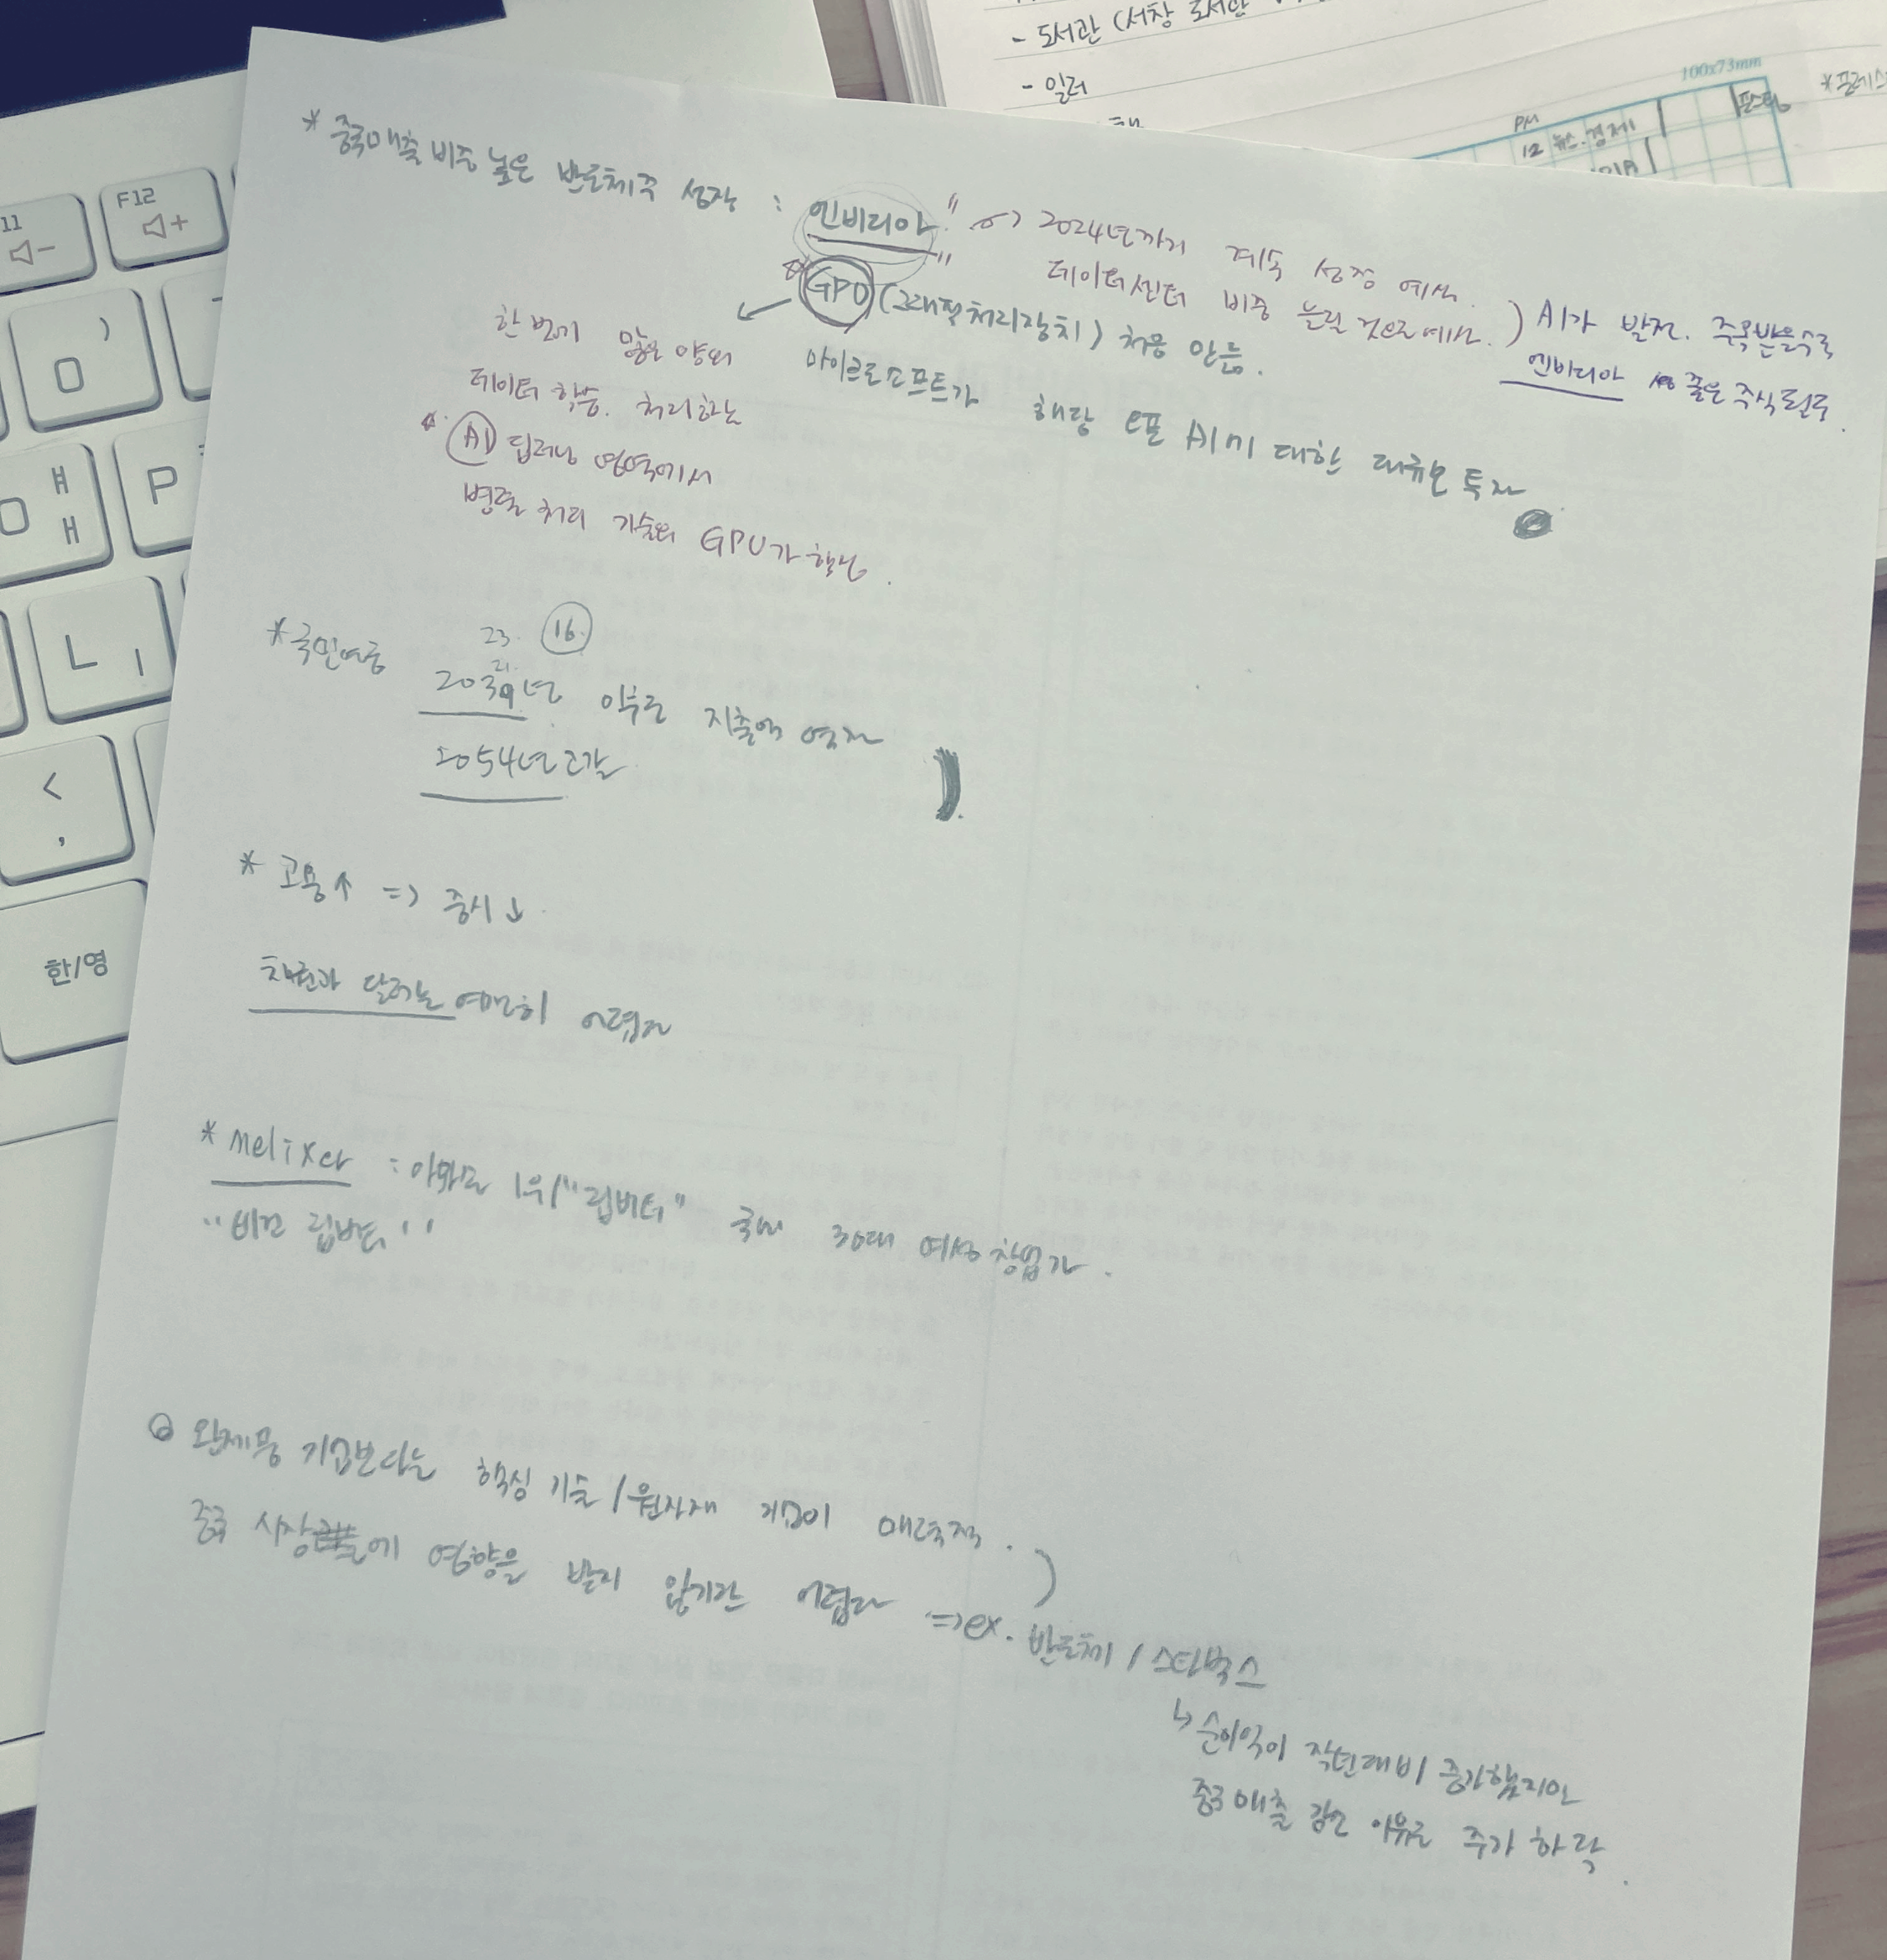 - 도서관 (서창 도서관
- 일러
100x73mm
PM
12 뉴스.경제
*프레스
F12
11
한/영
P
L
* 중국매출 비중 높은 반도체주 성장 : 엔비디아
2024년까지 계속 성장 예상.
데이터센터 비중 늘릴 것으로 예상.
) AI가 발전. 주목받을수록
엔비디아 좋은 주식
GPU (그래픽처리장치) 처음 만듬.
마이크로소프트가 해당 AI에 대한 대규모 투자
한번에 많은 양의
데이터 학습. 처리하는
AI 딥러닝 영역에서
병렬 처리 기술의 GPU가 핵심.
* 국민연금
23. 16.
21.
2039년 이후로 지출액
2054년 고갈
* 고용↑ => 증시↓
여전히 어렵다
* melixer : 아마존 1위/"립버터" 국내 30대 여성 창업가.
"비건 립밤"
완제품 기업보다는 핵심 기술/원자재 기업이 매력적.
중국 시장에 영향을 받지 않기란 어렵다 => ex. 반도체 / 스타벅스
↳ 순이익이 작년대비 증가했지만
중국매출 감소 이유로 주가 하락.